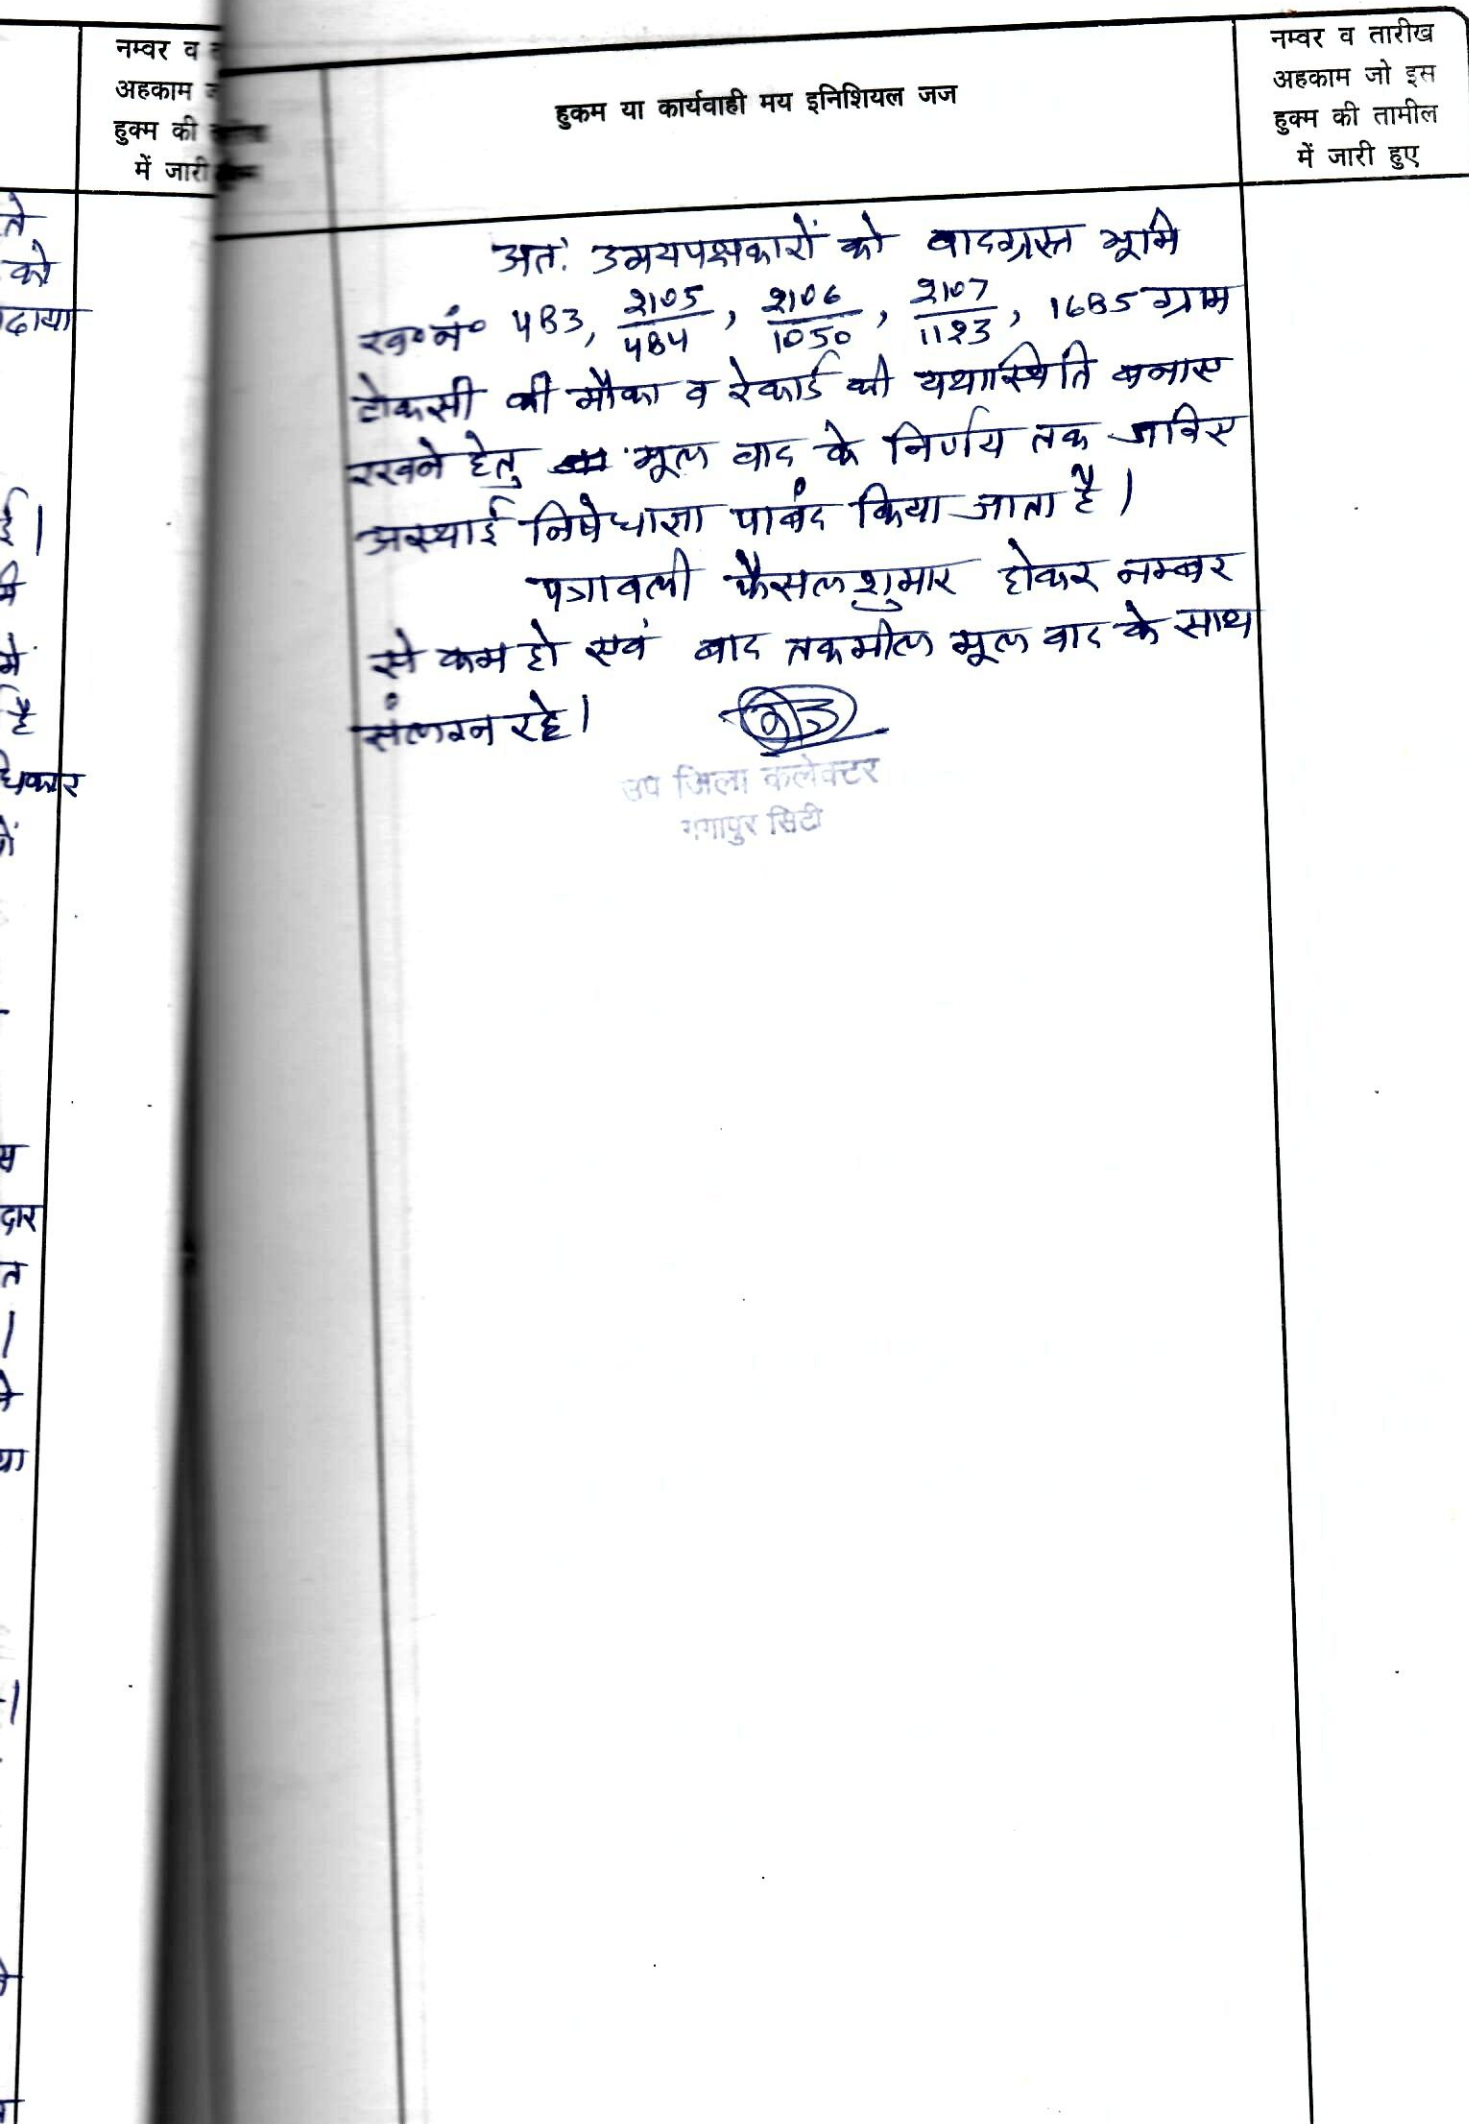 नम्बर व
अहकाम
हुक्म की
में जारी
हुकम या कार्यवाही मय इनिशियल जज
नम्वर व तारीख
अहकाम जो इस
हुक्म की तामील
में जारी हुए
ते
को
दाया
ई।
मे
है
धिकार
दार
त
।
या
अतः उभयपक्षकारों को वादग्रस्त भूमि
ख०नं० 483, 2105/484, 2106/1050, 2107/1123, 1685 ग्राम
टोकसी की मौका व रेकार्ड की यथास्थिति बनाए
रखने हेतु मूल वाद के निर्णय तक जरिए
अस्थाई निषेधाज्ञा पाबंद किया जाता है।
पत्रावली फैसल शुमार होकर नम्बर
से कम हो एवं बाद तकमील मूल वाद के साथ
संलग्न रहे।
उप जिला कलेक्टर
गंगापुर सिटी